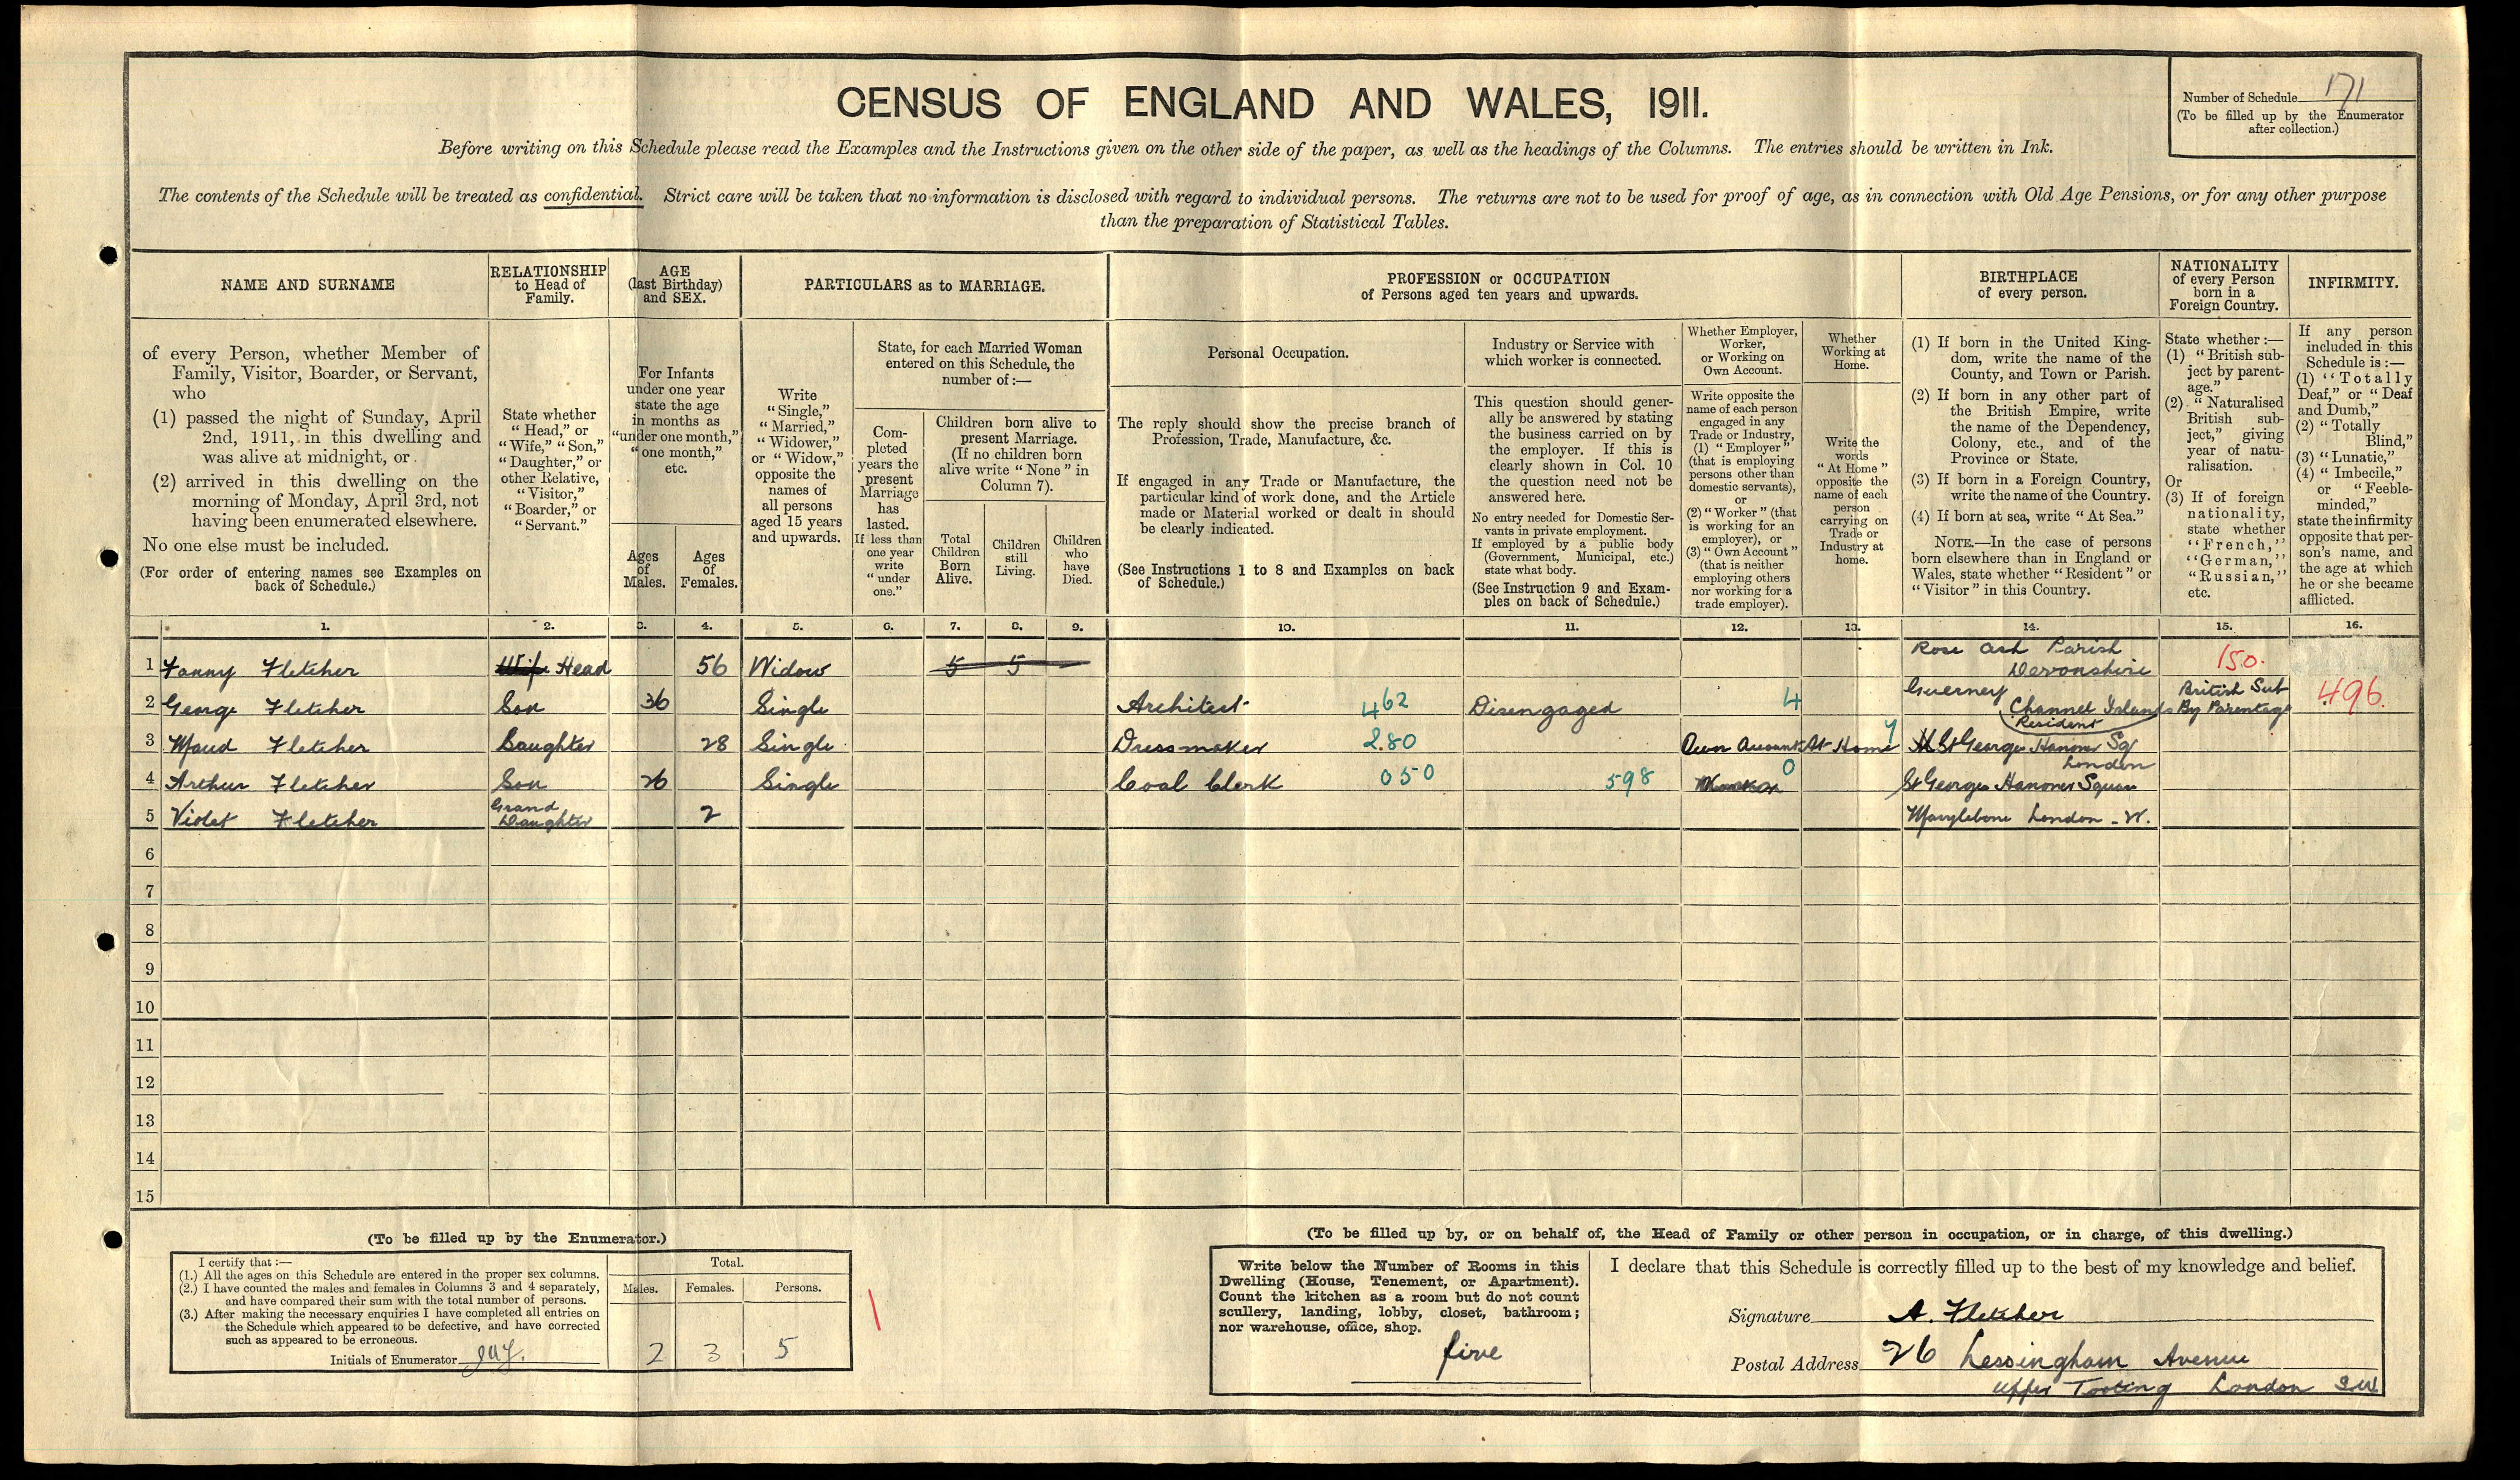 CENSUS OF ENGLAND AND WALES, 1911.
Number of Schedule 171
(To be filled up by the Enumerator
after collection.)
Before writing on this Schedule please read the Examples and the Instructions given on the other side of the paper, as well as the headings of the Columns. The entries should be written in Ink.
The contents of the Schedule will be treated as confidential. Strict care will be taken that no information is disclosed with regard to individual persons. The returns are not to be used for proof of age, as in connection with Old Age Pensions, or for any other purpose
than the preparation of Statistical Tables.
NAME AND SURNAME
of every Person, whether Member of
Family, Visitor, Boarder, or Servant,
who
(1) passed the night of Sunday, April
2nd, 1911, in this dwelling and
was alive at midnight, or
(2) arrived in this dwelling on the
morning of Monday, April 3rd, not
having been enumerated elsewhere.
No one else must be included.
(For order of entering names see Examples on
back of Schedule.)
RELATIONSHIP
to Head of
Family.
State whether
"Head," or
"Wife," "Son,"
"Daughter," or
other Relative,
"Visitor,"
"Boarder," or
"Servant."
AGE
(last Birthday)
and SEX.
For Infants
under one year
state the age
in months as
"under one month,"
"one month,"
etc.
Ages
of
Males.
Ages
of
Females.
PARTICULARS as to MARRIAGE.
Write
"Single,"
"Married,"
"Widower,"
or "Widow,"
opposite the
names of
all persons
aged 15 years
and upwards.
State, for each Married Woman
entered on this Schedule, the
number of:—
Com-
pleted
years the
present
Marriage
has
lasted.
If less than
one year
write
"under
one."
Children born alive to
present Marriage.
(If no children born
alive write "None" in
Column 7).
Total
Children
Born
Alive.
Children
still
Living.
Children
who
have
Died.
PROFESSION or OCCUPATION
of Persons aged ten years and upwards.
Personal Occupation.
The reply should show the precise branch of
Profession, Trade, Manufacture, &c.
If engaged in any Trade or Manufacture, the
particular kind of work done, and the Article
made or Material worked or dealt in should
be clearly indicated.
(See Instructions 1 to 8 and Examples on back
of Schedule.)
Industry or Service with
which worker is connected.
This question should gener-
ally be answered by stating
the business carried on by
the employer. If this is
clearly shown in Col. 10
the question need not be
answered here.
No entry needed for Domestic Ser-
vants in private employment.
If employed by a public body
(Government, Municipal, etc.)
state what body.
(See Instruction 9 and Exam-
ples on back of Schedule.)
Whether Employer,
Worker,
or Working on
Own Account.
Write opposite the
name of each person
engaged in any
Trade or Industry,
(1) "Employer"
(that is employing
persons other than
domestic servants),
or
(2) "Worker" (that
is working for an
employer), or
(3) "Own Account"
(that is neither
employing others
nor working for a
trade employer).
Whether
Working at
Home.
Write the
words
"At Home"
opposite the
name of each
person
carrying on
Trade or
Industry at
home.
BIRTHPLACE
of every person.
(1) If born in the United King-
dom, write the name of the
County, and Town or Parish.
(2) If born in any other part of
the British Empire, write
the name of the Dependency,
Colony, etc., and of the
Province or State.
(3) If born in a Foreign Country,
write the name of the Country.
(4) If born at sea, write "At Sea."
NOTE.—In the case of persons
born elsewhere than in England or
Wales, state whether "Resident" or
"Visitor" in this Country.
NATIONALITY
of every Person
born in a
Foreign Country.
State whether:—
(1) "British sub-
ject by parent-
age."
(2) "Naturalised
British sub-
ject," giving
year of natu-
ralisation.
Or
(3) If of foreign
nationality,
state whether
"French,"
"German,"
"Russian,"
etc.
INFIRMITY.
If any person
included in this
Schedule is:—
(1) "Totally
Deaf," or "Deaf
and Dumb,"
(2) "Totally
Blind,"
(3) "Lunatic,"
(4) "Imbecile,"
or "Feeble-
minded,"
state the infirmity
opposite that per-
son's name, and
the age at which
he or she became
afflicted.
1. 2. 3. 4. 5. 6. 7. 8. 9. 10. 11. 12. 13. 14. 15. 16.
1 Fanny Fletcher Wife Head 56 Widow 5 5 Rose Ash Parish
Devonshire 150.
2 George Fletcher Son 36 Single Architect 462 Disengaged 4 Guernsey
Channel Islands
Resident
British Sub
By Parentage
496.
3 Maud Fletcher Daughter 28 Single Dressmaker 280 Own Account At Home St George Hanover Sq
London
4 Arthur Fletcher Son 26 Single Coal Clerk 050 598 Worker 0 St Georges Hanover Square
5 Violet Fletcher Grand
Daughter 2 Marylebone London - W.
6
7
8
9
10
11
12
13
14
15
(To be filled up by the Enumerator.)
I certify that:—
(1.) All the ages on this Schedule are entered in the proper sex columns.
(2.) I have counted the males and females in Columns 3 and 4 separately,
and have compared their sum with the total number of persons.
(3.) After making the necessary enquiries I have completed all entries on
the Schedule which appeared to be defective, and have corrected
such as appeared to be erroneous.
Initials of Enumerator
Total.
Males. Females. Persons.
2 3 5
(To be filled up by, or on behalf of, the Head of Family or other person in occupation, or in charge, of this dwelling.)
Write below the Number of Rooms in this
Dwelling (House, Tenement, or Apartment).
Count the kitchen as a room but do not count
scullery, landing, lobby, closet, bathroom;
nor warehouse, office, shop.
five
I declare that this Schedule is correctly filled up to the best of my knowledge and belief.
Signature A. Fletcher
Postal Address 26 Lessingham Avenue
Upper Tooting London SW